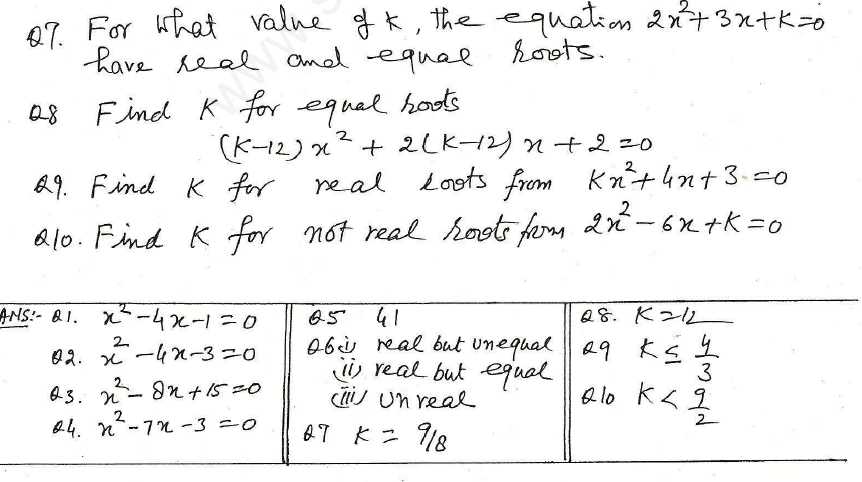 Q7. For what value of k, the equation 2x²+3x+k=0
have real and equal roots.
Q8 Find K for equal roots
(K-12)x² + 2(K-12)x + 2 = 0
Q9. Find K for real roots from Kx²+4x+3=0
Q10. Find K for not real roots from 2x²-6x+K=0
ANS:- Q1. x²-4x-1=0
Q2. x²-4x-3=0
Q3. x²-8x+15=0
Q4. x²-7x-3=0
Q5 41
Q6(i) real but unequal
(ii) real but equal
(iii) unreal
Q7 K = 9/8
Q8. K=12
Q9 K ≤ 4/3
Q10 K < 9/2